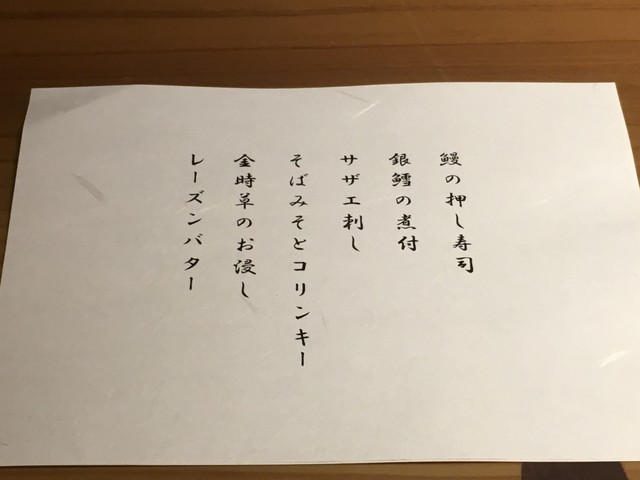 鰻の押し寿司
銀鱈の煮付
サザエ刺し
そばみそとコリンキー
金時草のお浸し
レーズンバター